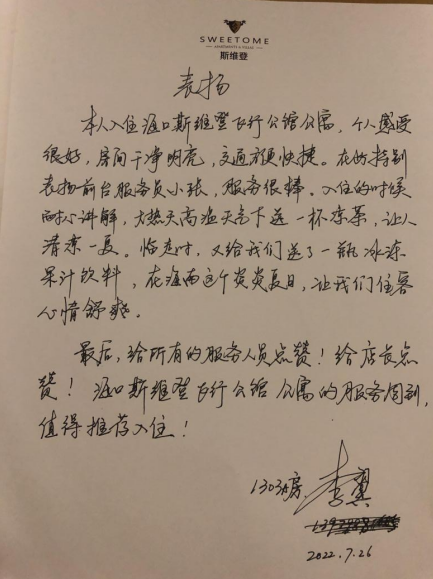 SWEETOME
APARTMENTS & VILLAS
斯维登
表扬
本人入住海口斯维登飞行公馆公寓，个人感受
很好，房间干净明亮，交通方便快捷。在此特别
表扬前台服务员小张，服务很棒。入住的时候
耐心讲解，大热天高温天气下送一杯凉茶，让人
清凉一夏。临走时，又给我们送了一瓶冰凉
果汁饮料，在海南这个炎炎夏日，让我们住客
心情舒爽。
最后，给所有的服务人员点赞！给店长点
赞！海口斯维登飞行公馆公寓的服务周到，
值得推荐入住！
1303A房 李
2022.7.26